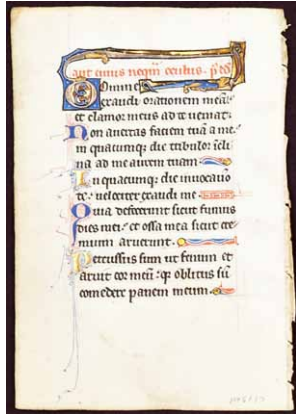 aut cuius
Domine
exaudi orationem meā
et clamor meus ad te veniat
Non avertas faciem tuā a me
in quacumq; die tribulor incli
na ad me aurem tuam
In quacumq; die invocavo
te velociter exaudi me
Quia defecerunt sicut fumus
dies mei et ossa mea sicut cre
mium aruerunt.
Percussus sum ut fenum et
aruit cor meū qr oblitus sū
comedere panem meum